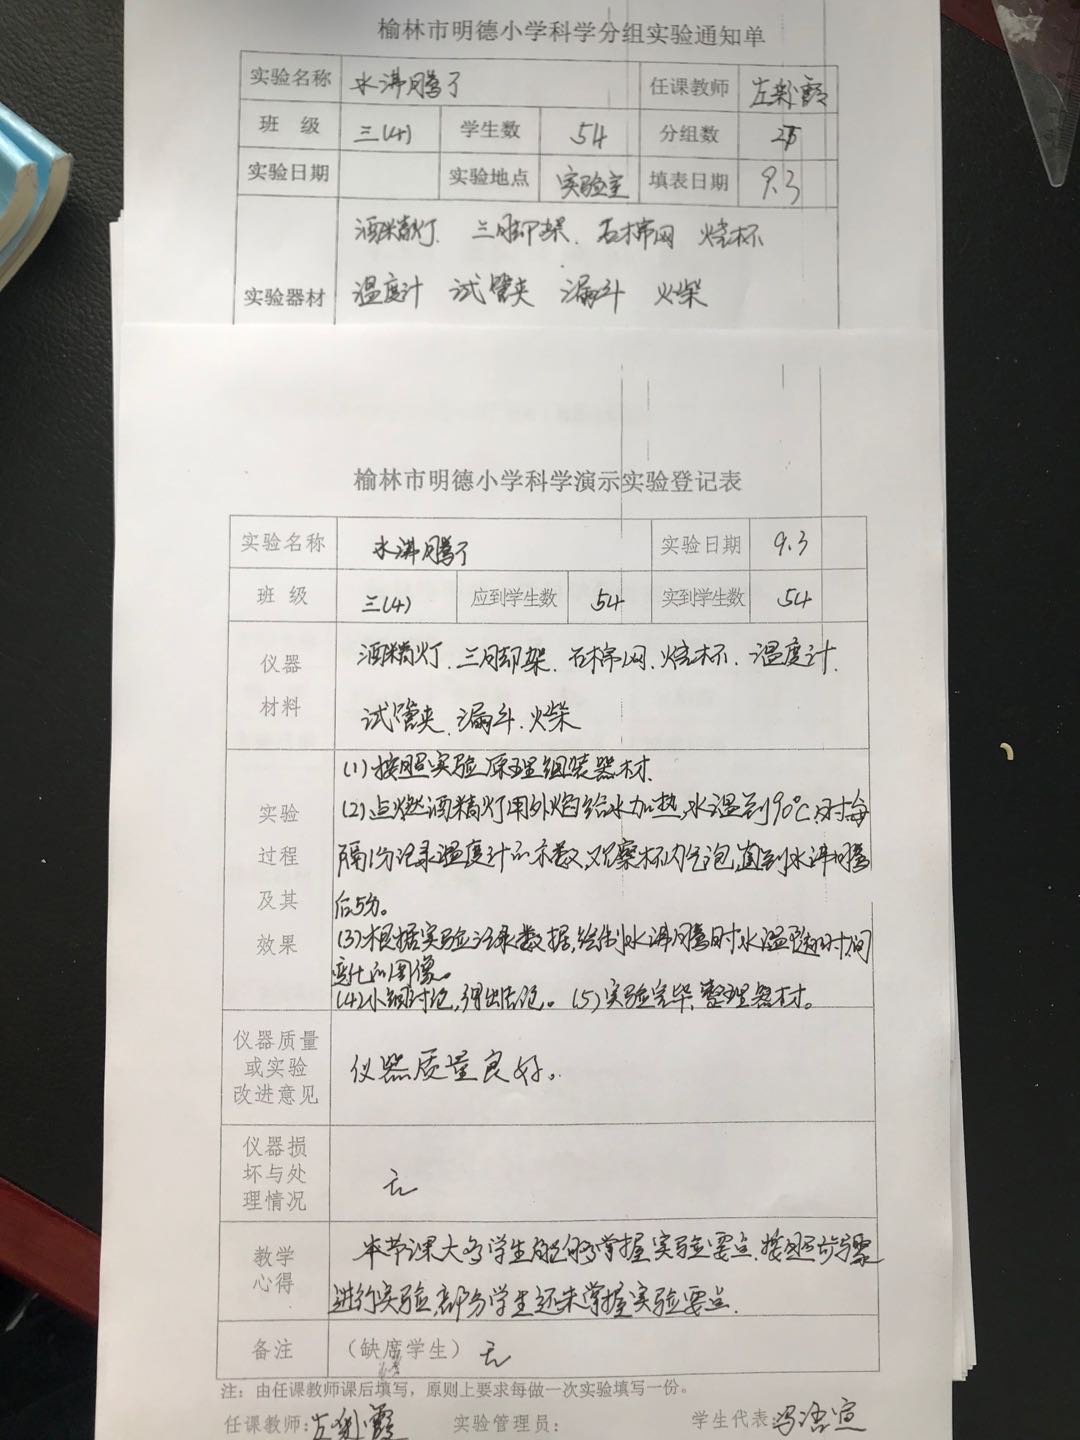 榆林市明德小学科学分组实验通知单
实验名称 水沸腾了 任课教师 左彩霞
班 级 三(4) 学生数 54 分组数
实验日期 实验地点 实验室 填表日期 9.3
酒精灯. 三脚架. 石棉网 烧杯
实验器材 温度计 试管夹 漏斗 火柴
榆林市明德小学科学演示实验登记表
实验名称 水沸腾了 实验日期 9.3
班 级 三(4) 应到学生数 54 实到学生数 54
仪器 酒精灯.三脚架.石棉网.烧杯.温度计.
材料 试管夹.漏斗.火柴
(1)按照实验原理组装器材.
实验 (2)点燃酒精灯用外焰给水加热,水温到90℃时每
过程 隔1分记录温度计的示数,观察杯内气泡,直到水沸腾
及其 后5分。
效果 (3)根据实验记录数据,绘制水沸腾时水温随时间
变化的图像。
(4)小组讨论,得出结论。(5)实验完毕,整理器材。
仪器质量
或实验 仪器质量良好。
改进意见
仪器损
坏与处 无
理情况
教学 本节课大多学生能够掌握实验要点.按照步骤
心得 进行实验,部分学生还未掌握实验要点.
备注 (缺席学生) 无
注:由任课教师课后填写,原则上要求每做一次实验填写一份。
任课教师:左彩霞 实验管理员: 学生代表:冯语宣